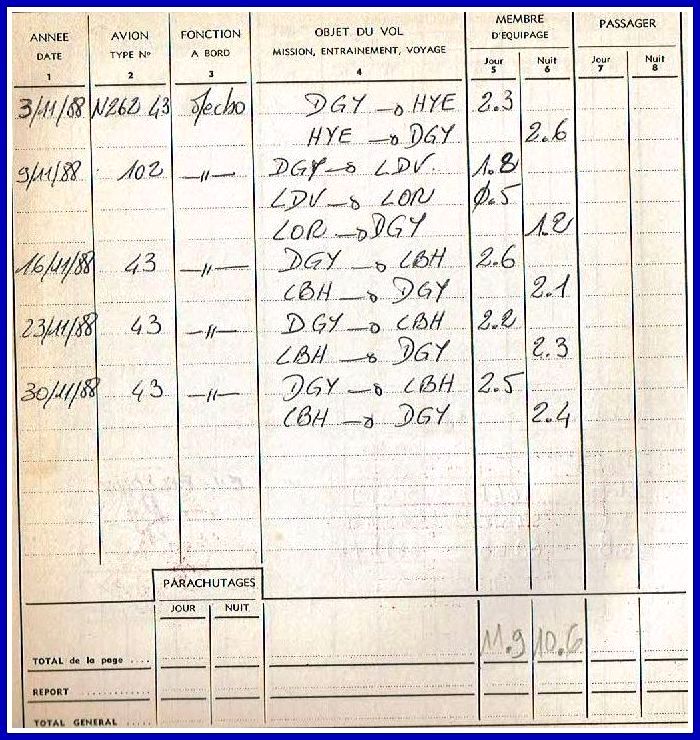 ANNEE AVION FONCTION OBJET DU VOL MEMBRE PASSAGER
DATE TYPE N° A BORD MISSION, ENTRAINEMENT, VOYAGE D'EQUIPAGE
Jour Nuit Jour Nuit
1 2 3 4 5 6 7 8
3/11/88 N262 43 Mecbo DGY → HYE 2.3
HYE → DGY 2.6
9/11/88 102 —"— DGY → LDV. 1.8
LDV → LOR 0.5
LOR → DGY 1.2
16/11/88 43 —"— DGY → LBH 2.6
LBH → DGY 2.1
23/11/88 43 —"— DGY → LBH 2.2
LBH → DGY 2.3
30/11/88 43 —"— DGY → LBH 2.5
LBH → DGY 2.4
PARACHUTAGES
JOUR NUIT
TOTAL de la page .... 11.9 10.6
REPORT ............
TOTAL GENERAL .....